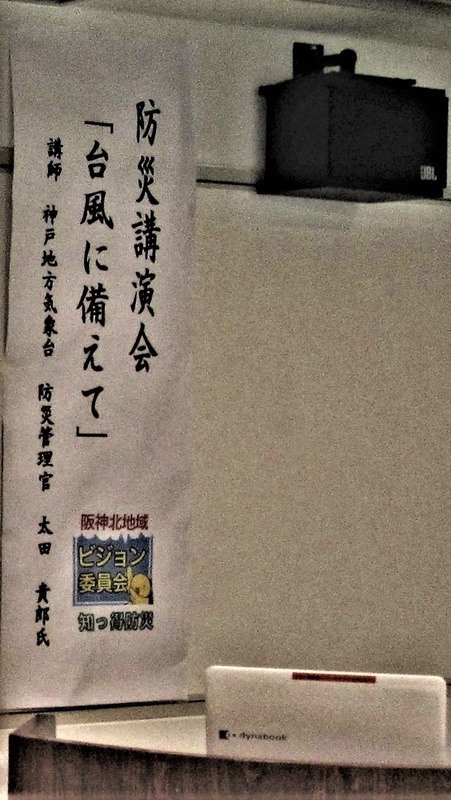 防災講演会
「台風に備えて」
講師 神戸地方気象台 防災管理官 太田 貴郎氏
阪神北地域
ビジョン
委員会
知っ得防災
JBL
dynabook